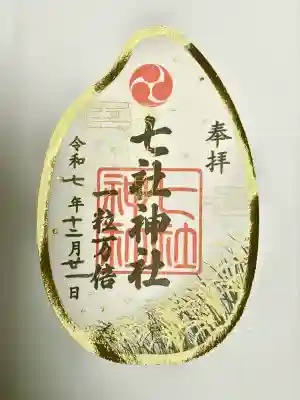 奉拝
七社神社
一粒万倍
令和七年十二月廿一日